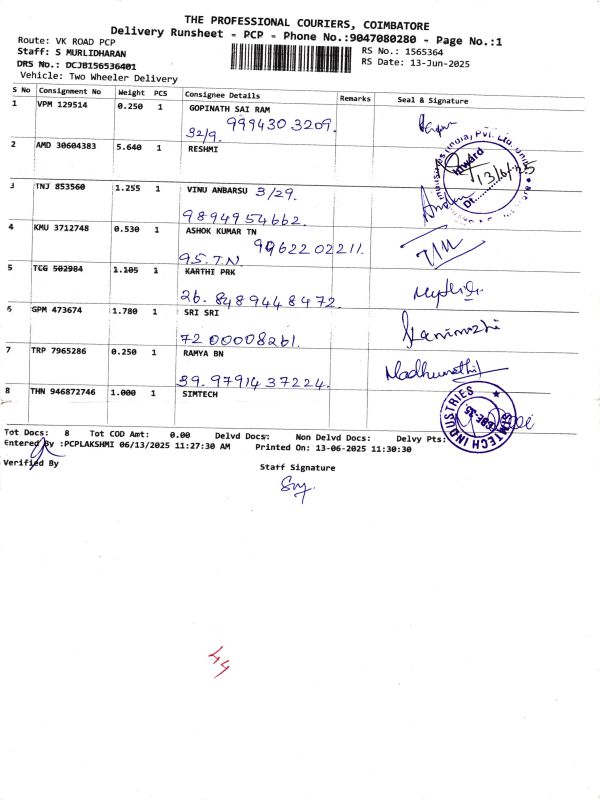 THE PROFESSIONAL COURIERS, COIMBATORE
Delivery Runsheet - PCP - Phone No.:9047080280 - Page No.:1
Route: VK ROAD PCP
Staff: S MURLIDHARAN
DRS No.: DCJB156536401
Vehicle: Two Wheeler Delivery
RS No.: 1565364
RS Date: 13-Jun-2025
S No Consignment No Weight PCS Consignee Details Remarks Seal & Signature
1 VPM 129514 0.250 1 GOPINATH SAI RAM
32/9. 9994303209.
2 AMD 30604383 5.640 1 RESHMI
Inward
13/6/25
3 TNJ 853560 1.255 1 VINU ANBARSU 3/29.
9894954662.
4 KMU 3712748 0.530 1 ASHOK KUMAR TN
9962202211.
95.T.N.
5 TCG 502984 1.105 1 KARTHI PRK
26. 8489448472.
6 GPM 473674 1.780 1 SRI SRI
7200008261.
7 TRP 7965286 0.250 1 RAMYA BN
39. 9791437224.
Madhumathi
8 THN 946872746 1.000 1 SIMTECH
SIMTECH INDUSTRIES
CBE-35.
Tot Docs: 8 Tot COD Amt: 0.00 Delvd Docs: Non Delvd Docs: Delvy Pts:
Entered By :PCPLAKSHMI 06/13/2025 11:27:30 AM Printed On: 13-06-2025 11:30:30
Verified By
Staff Signature
44